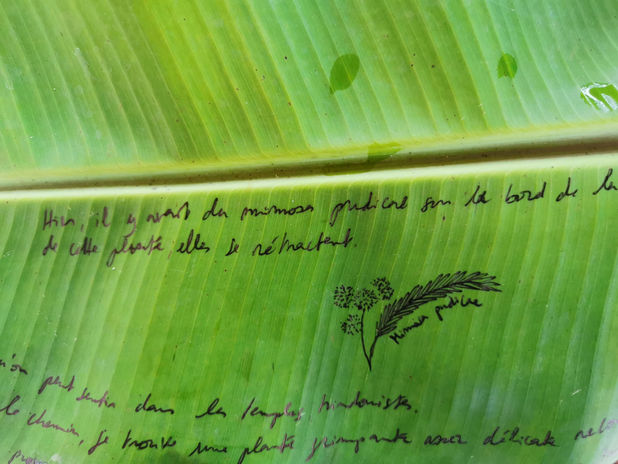 Hier, il y avait du mimosa pudique sur le bord de la
de cette plante, elles se rétractent.
Mimosa pudique
peut sentir dans les temples hindouistes.
le chemin, je trouve une plante grimpante assez délicate